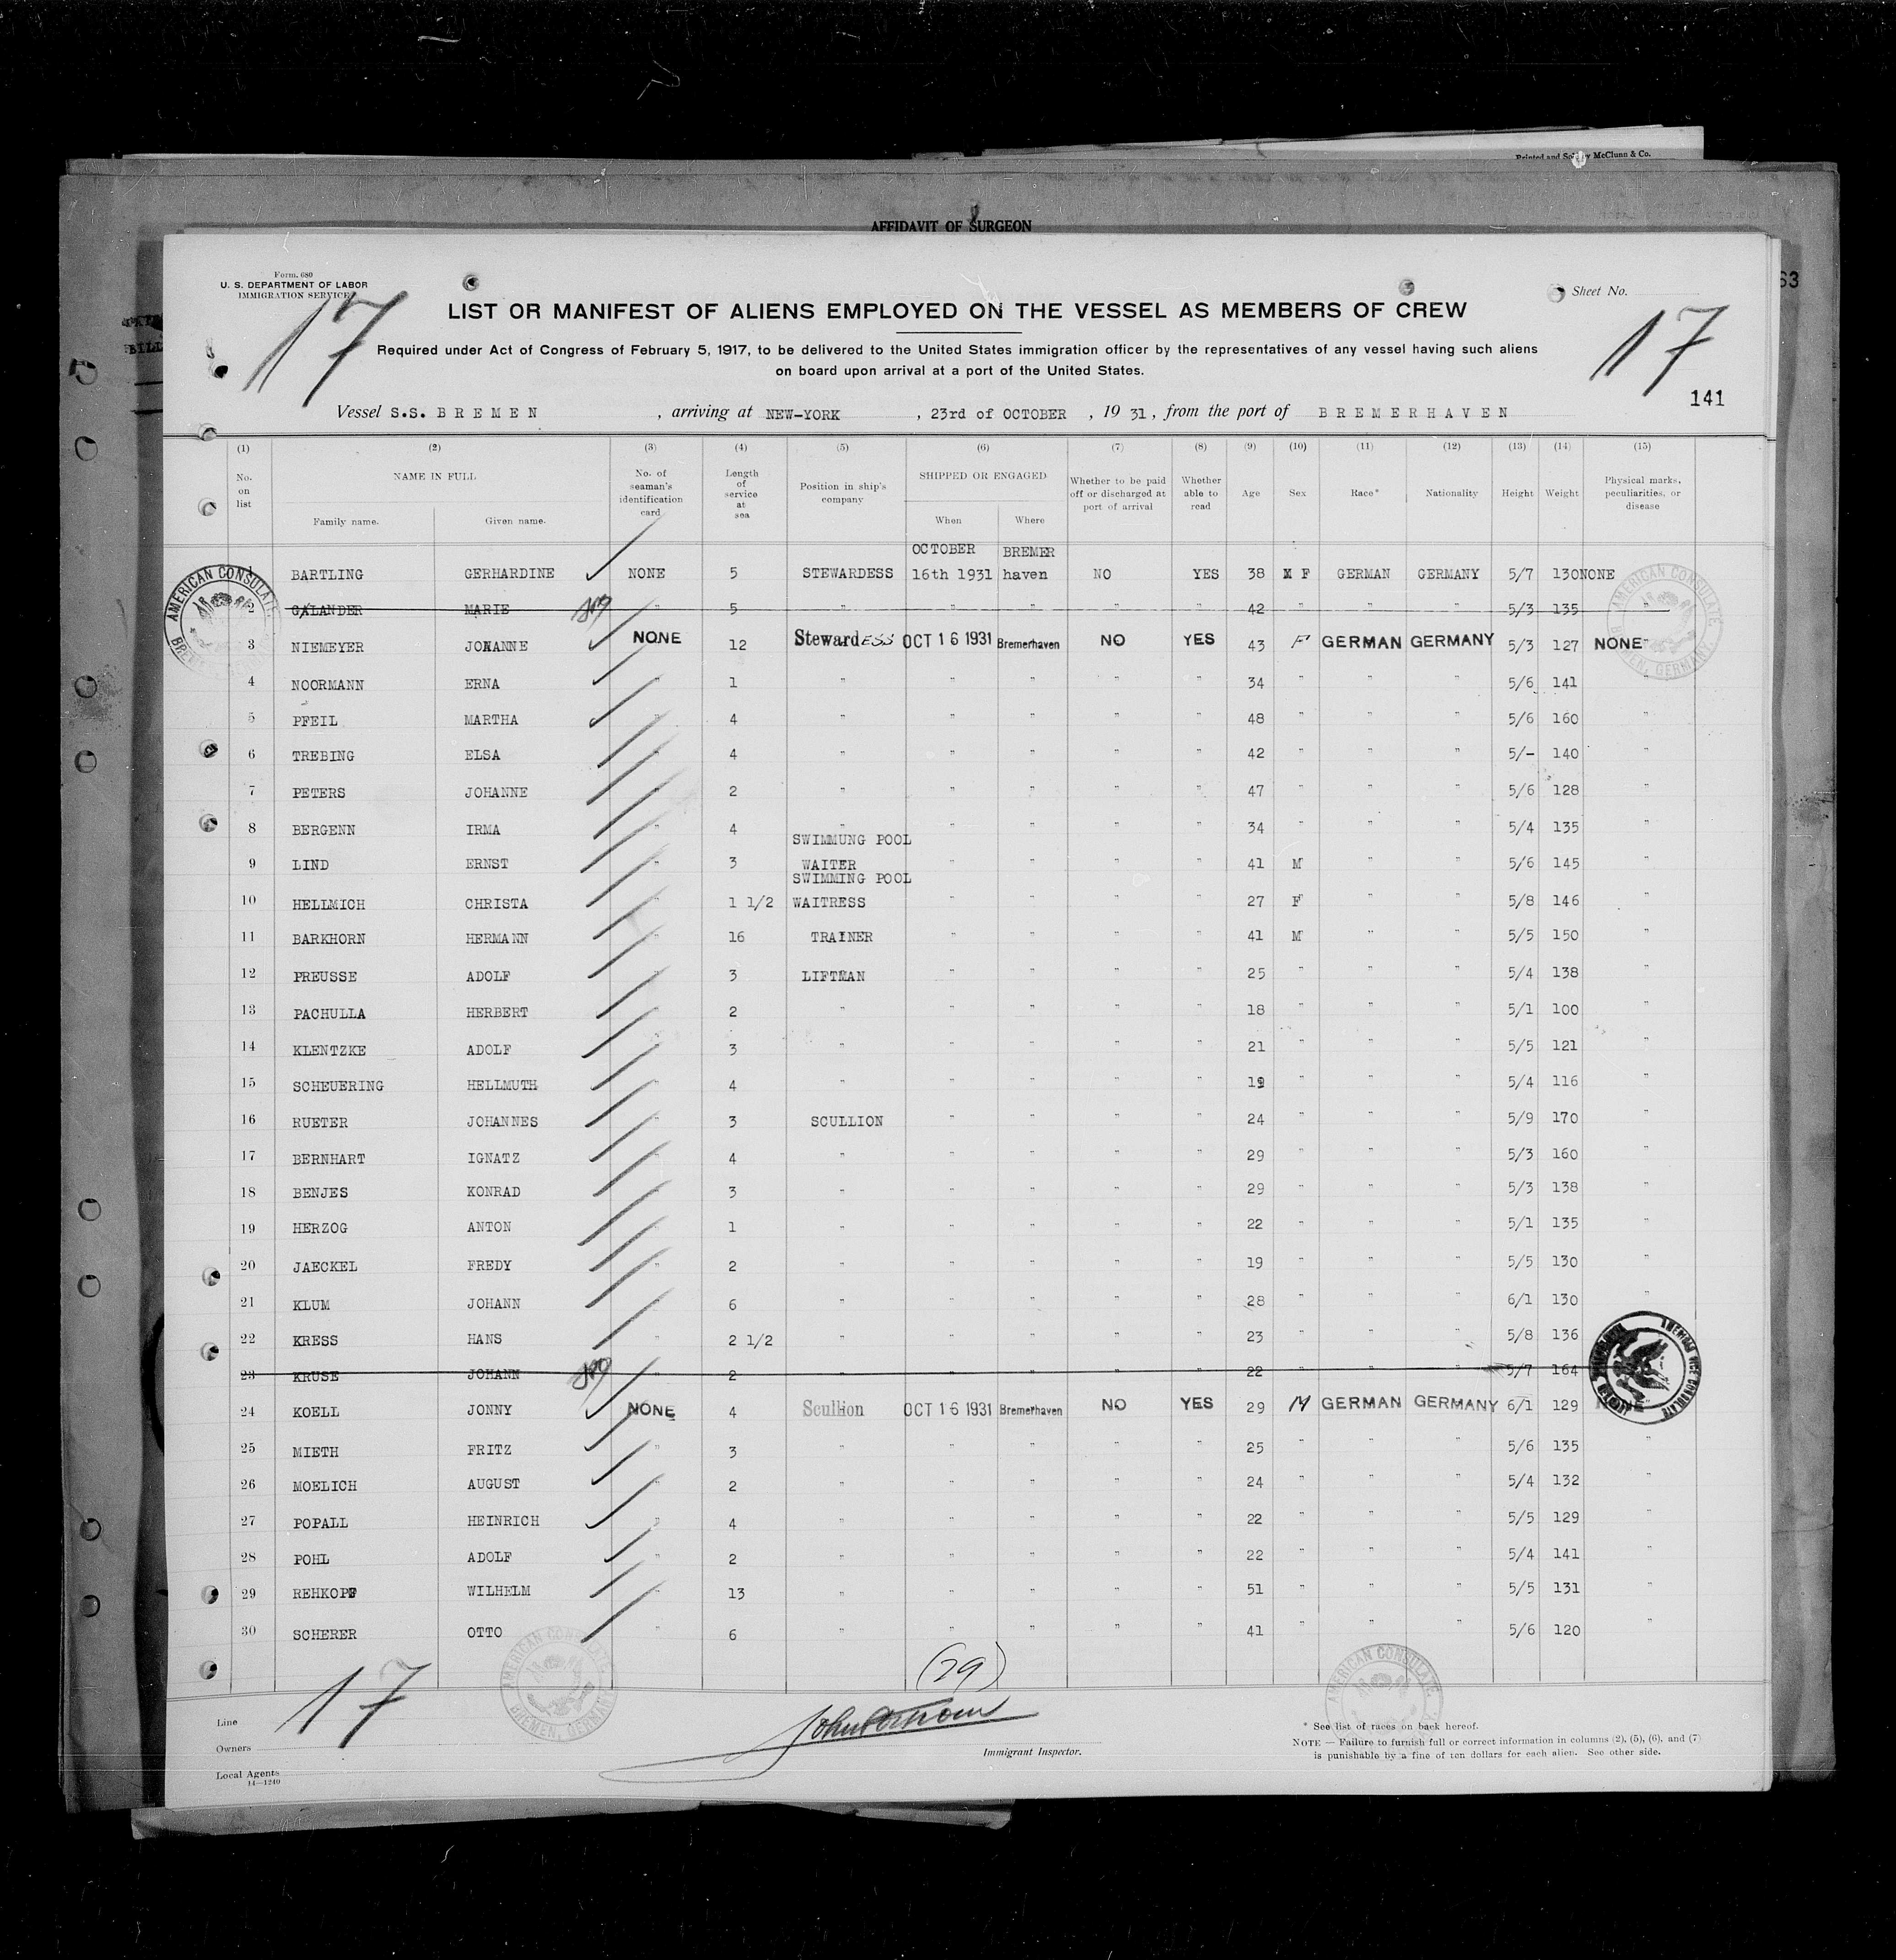 Printed and Sold by McClunn & Co.
AFFIDAVIT OF SURGEON
63
BILL
Form. 680
U. S. DEPARTMENT OF LABOR
IMMIGRATION SERVICE
Sheet No.
17
17
LIST OR MANIFEST OF ALIENS EMPLOYED ON THE VESSEL AS MEMBERS OF CREW
Required under Act of Congress of February 5, 1917, to be delivered to the United States immigration officer by the representatives of any vessel having such aliens
on board upon arrival at a port of the United States.
141
Vessel S.S. BREMEN , arriving at NEW-YORK , 23rd of OCTOBER , 19 31, from the port of BREMERHAVEN
(1) (2) (3) (4) (5) (6) (7) (8) (9) (10) (11) (12) (13) (14) (15)
No. on list NAME IN FULL Family name. Given name. No. of seaman's identification card Length of service at sea Position in ship's company SHIPPED OR ENGAGED When Where Whether to be paid off or discharged at port of arrival Whether able to read Age Sex Race* Nationality Height Weight Physical marks, peculiarities, or disease
OCTOBER BREMER
1 BARTLING GERHARDINE NONE 5 STEWARDESS 16th 1931 haven NO YES 38 F GERMAN GERMANY 5/7 130 NONE
2 GALANDER MARIE " 5 " " " " " 42 " " " 5/3 135 "
3 NIEMEYER JOHANNE NONE 12 Stewardess OCT 16 1931 Bremerhaven NO YES 43 F GERMAN GERMANY 5/3 127 NONE
4 NOORMANN ERNA " 1 " " " " " 34 " " " 5/6 141 "
5 PFEIL MARTHA " 4 " " " " " 48 " " " 5/6 160 "
6 TREBING ELSA " 4 " " " " " 42 " " " 5/- 140 "
7 PETERS JOHANNE " 2 " " " " " 47 " " " 5/6 128 "
8 BERGENN IRMA " 4 " " " " " 34 " " " 5/4 135 "
SWIMMUNG POOL
9 LIND ERNST " 3 WAITER " " " " 41 M " " 5/6 145 "
SWIMMING POOL
10 HELLMICH CHRISTA " 1 1/2 WAITRESS " " " " 27 F " " 5/8 146 "
11 BARKHORN HERMANN " 16 TRAINER " " " " 41 M " " 5/5 150 "
12 PREUSSE ADOLF " 3 LIFTMAN " " " " 25 " " " 5/4 138 "
13 PACHULLA HERBERT " 2 " " " " " 18 " " " 5/1 100 "
14 KLENTZKE ADOLF " 3 " " " " " 21 " " " 5/5 121 "
15 SCHEUERING HELLMUTH " 4 " " " " " 19 " " " 5/4 116 "
16 RUETER JOHANNES " 3 SCULLION " " " " 24 " " " 5/9 170 "
17 BERNHART IGNATZ " 4 " " " " " 29 " " " 5/3 160 "
18 BENJES KONRAD " 3 " " " " " 29 " " " 5/3 138 "
19 HERZOG ANTON " 1 " " " " " 22 " " " 5/1 135 "
20 JAECKEL FREDY " 2 " " " " " 19 " " " 5/5 130 "
21 KLUM JOHANN " 6 " " " " " 28 " " " 6/1 130 "
22 KRESS HANS " 2 1/2 " " " " " 23 " " " 5/8 136
23 KRUSE JOHANN " 2 " " " " " 22 " " " 5/7 164
24 KOELL JONNY NONE 4 Scullion OCT 16 1931 Bremerhaven NO YES 29 M GERMAN GERMANY 6/1 129 NONE
25 MIETH FRITZ " 3 " " " " " 25 " " " 5/6 135 "
26 MOELICH AUGUST " 2 " " " " " 24 " " " 5/4 132 "
27 POPALL HEINRICH " 4 " " " " " 22 " " " 5/5 129 "
28 POHL ADOLF " 2 " " " " " 22 " " " 5/4 141 "
29 REHKOPF WILHELM " 13 " " " " " 51 " " " 5/5 131 "
30 SCHERER OTTO " 6 " " " " " 41 " " " 5/6 120 "
(29)
17
AMERICAN CONSULATE
BREMEN, GERMANY
Line
Owners
Local Agents
14—1240
Immigrant Inspector.
* See list of races on back hereof.
NOTE — Failure to furnish full or correct information in columns (2), (5), (6), and (7)
is punishable by a fine of ten dollars for each alien. See other side.